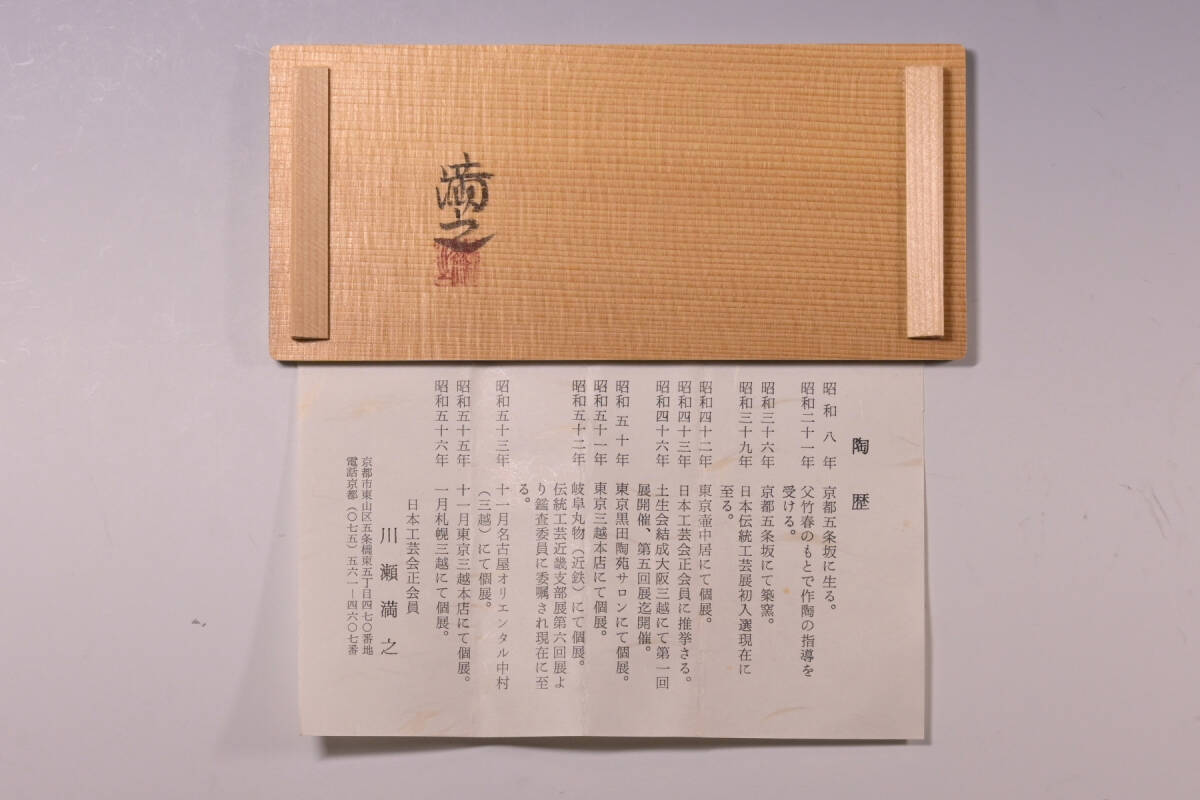 満之
陶歴
昭和八年 京都五条坂に生る。
昭和二十一年 父竹春のもとで作陶の指導を
受ける。
昭和三十六年 京都五条坂にて築窯。
昭和三十九年 日本伝統工芸展初入選現在に
至る。
昭和四十二年 東京壷中居にて個展。
昭和四十三年 日本工芸会正会員に推挙さる。
昭和四十六年 土生会結成大阪三越にて第一回
展開催、第五回展迄開催。
昭和五十年 東京黒田陶苑サロンにて個展。
昭和五十一年 東京三越本店にて個展。
昭和五十二年 岐阜丸物(近鉄)にて個展。
伝統工芸近畿支部展第六回展よ
り鑑査委員に委嘱され現在に至
る。
昭和五十三年 十一月名古屋オリエンタル中村
(三越)にて個展。
昭和五十五年 十一月東京三越本店にて個展。
昭和五十六年 一月札幌三越にて個展。
日本工芸会正会員
川瀬満之
京都市東山区五条橋東五丁目四七〇番地
電話京都(〇七五)五六一―四六〇七番